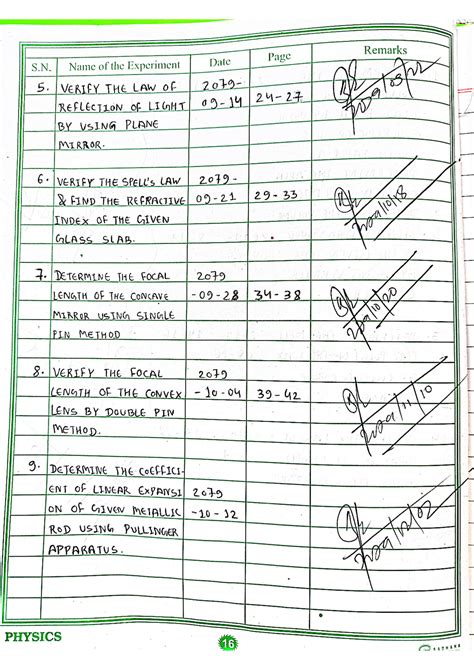 S.N. Name of the Experiment Date Page Remarks
5. VERIFY THE LAW OF 2079-
REFLECTION OF LIGHT 09-14 24-27
BY USING PLANE
MIRROR.
6. VERIFY THE SPELL'S LAW 2079-
& FIND THE REFRACTIVE 09-21 29-33
INDEX OF THE GIVEN
GLASS SLAB.
7. DETERMINE THE FOCAL 2079
LENGTH OF THE CONCAVE -09-28 34-38
MIRROR USING SINGLE
PIN METHOD
8. VERIFY THE FOCAL 2079
LENGTH OF THE CONVEX -10-04 39-42
LENS BY DOUBLE PIN
METHOD.
9. DETERMINE THE COEFFICI-
ENT OF LINEAR EXPANSI 2079
ON OF GIVEN METALLIC -10-12
ROD USING PULLINGER
APPARATUS.
PHYSICS
16